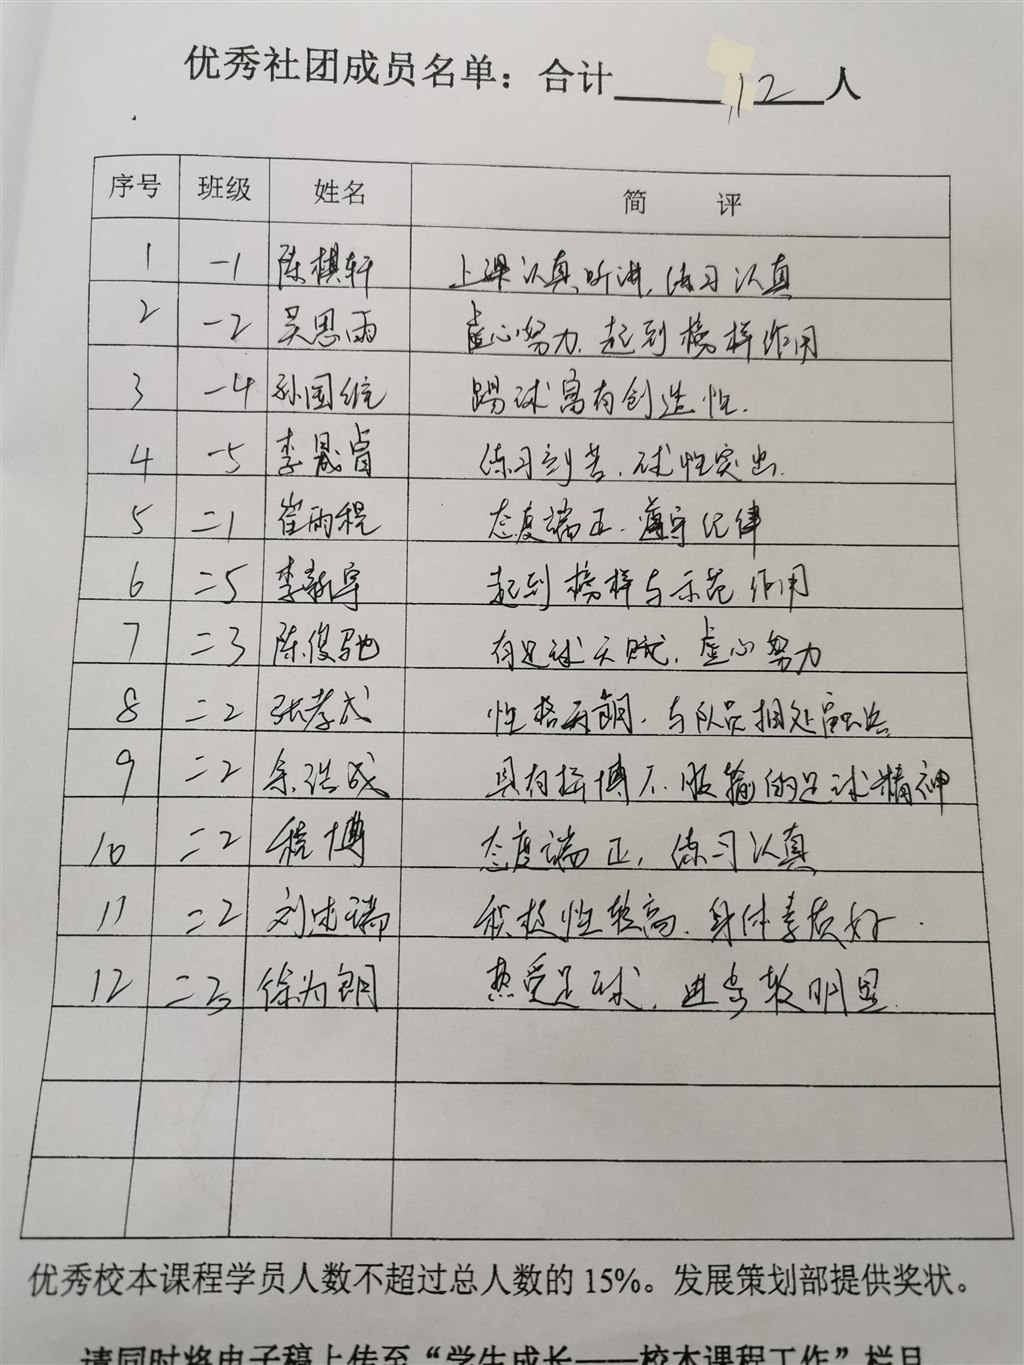 优秀社团成员名单：合计 12 人
序号 班级 姓名 简 评
1 一1 陈棋轩 上课认真听讲，练习认真
2 一2 吴思雨 虚心努力，起到榜样作用
3 一4 孙国维 踢球富有创造性.
4 一5 李晟睿 练习刻苦，球性突出.
5 二1 崔雨程 态度端正，遵守纪律
6 二5 李新宇 起到榜样与示范作用
7 二3 陈俊驰 有足球天赋，虚心努力
8 二2 张孝成 性格开朗，与队员相处融洽
9 二2 余浩成 具有拼博不服输的足球精神
10 二2 程博 态度端正，练习认真
11 二2 刘 瑞 积极性较高，身体素质好.
12 二3 徐为钢 热爱足球，进步较明显.
优秀校本课程学员人数不超过总人数的 15%。发展策划部提供奖状。
请同时将电子稿上传至“学生成长——校本课程工作”栏目